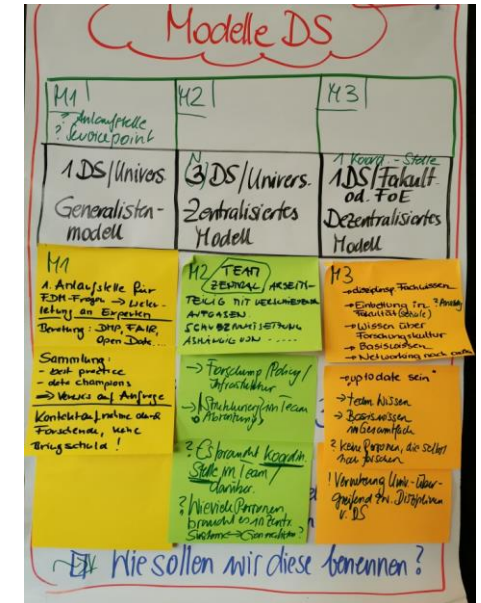 Modelle DS
M1
? Anlaufstelle
? Servicepoint
M2
M3
1 DS/Univers
Generalisten-
modell
3 DS/Univers.
Zentralisiertes
Modell
1 Koord.-Stelle
1DS/Fakult.
od. FoE
Dezentralisiertes
Modell
M1
1. Anlaufstelle für
FDM-Fragen → Weiter-
leitung an Experten
Beratung: DMP, FAIR,
Open Data
Sammlung:
- best practice
- data champions
→ Verweis auf Anfrage
Kontaktaufnahme durch
Forschende, keine
Bringschuld!
M2 TEAM
ZENTRAL ARBEITS-
TEILIG MIT VERSCHIEDENEN
AUFGABEN.
SCHWERPUNKTSETZUNG
ABHÄNGIG VON .....
→ Forschung/Policy/
Infrastruktur
→ im Team
? Es braucht Koordin.
Stelle im Team/
darüber.
? Wieviele Personen,
braucht es in Zentr.
→ Generalisten?
M3
→ disziplinsp. Fachwissen
→ Einbettung in
Fakultät (Schule)
→ Wissen über
Forschungskultur
→ Basiswissen
→ Networking nach
→ "up to date sein"
→ Team Wissen
→ Basiswissen
? Keine Personen, die selbst
noch forschen
! Vernetzung Univ.-über-
greifend zw. Disziplinen
v. DS
Wie sollen wir diese benennen?